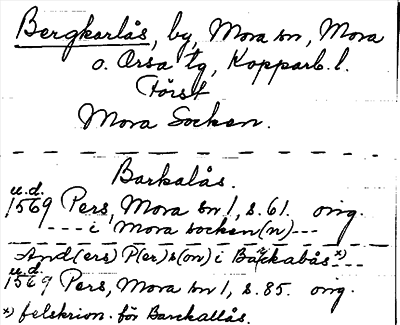 Bergkarlås, by, Mora sn, Mora
o. Orsa tg, Kopparb. l.
Först
Mora Socken.
Barkalås.
u.d.
1569 Pers, Mora sn 1, s. 61. orig.
--- i Mora socken(n) ---
And(ers) P(er)s(on) i Backabås *) ---
u.d.
1569 Pers, Mora sn 1, s. 85. orig.
*) felskrivn. för Barckallås.